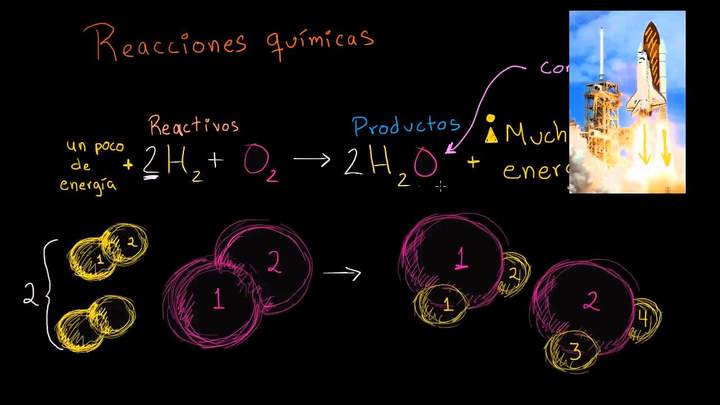 Reacciones químicas
Reactivos
Productos
un poco
de
energía
+ 2H₂ + O₂ → 2H₂O +
2
1 2
1 2
1 2
2 4
1 3